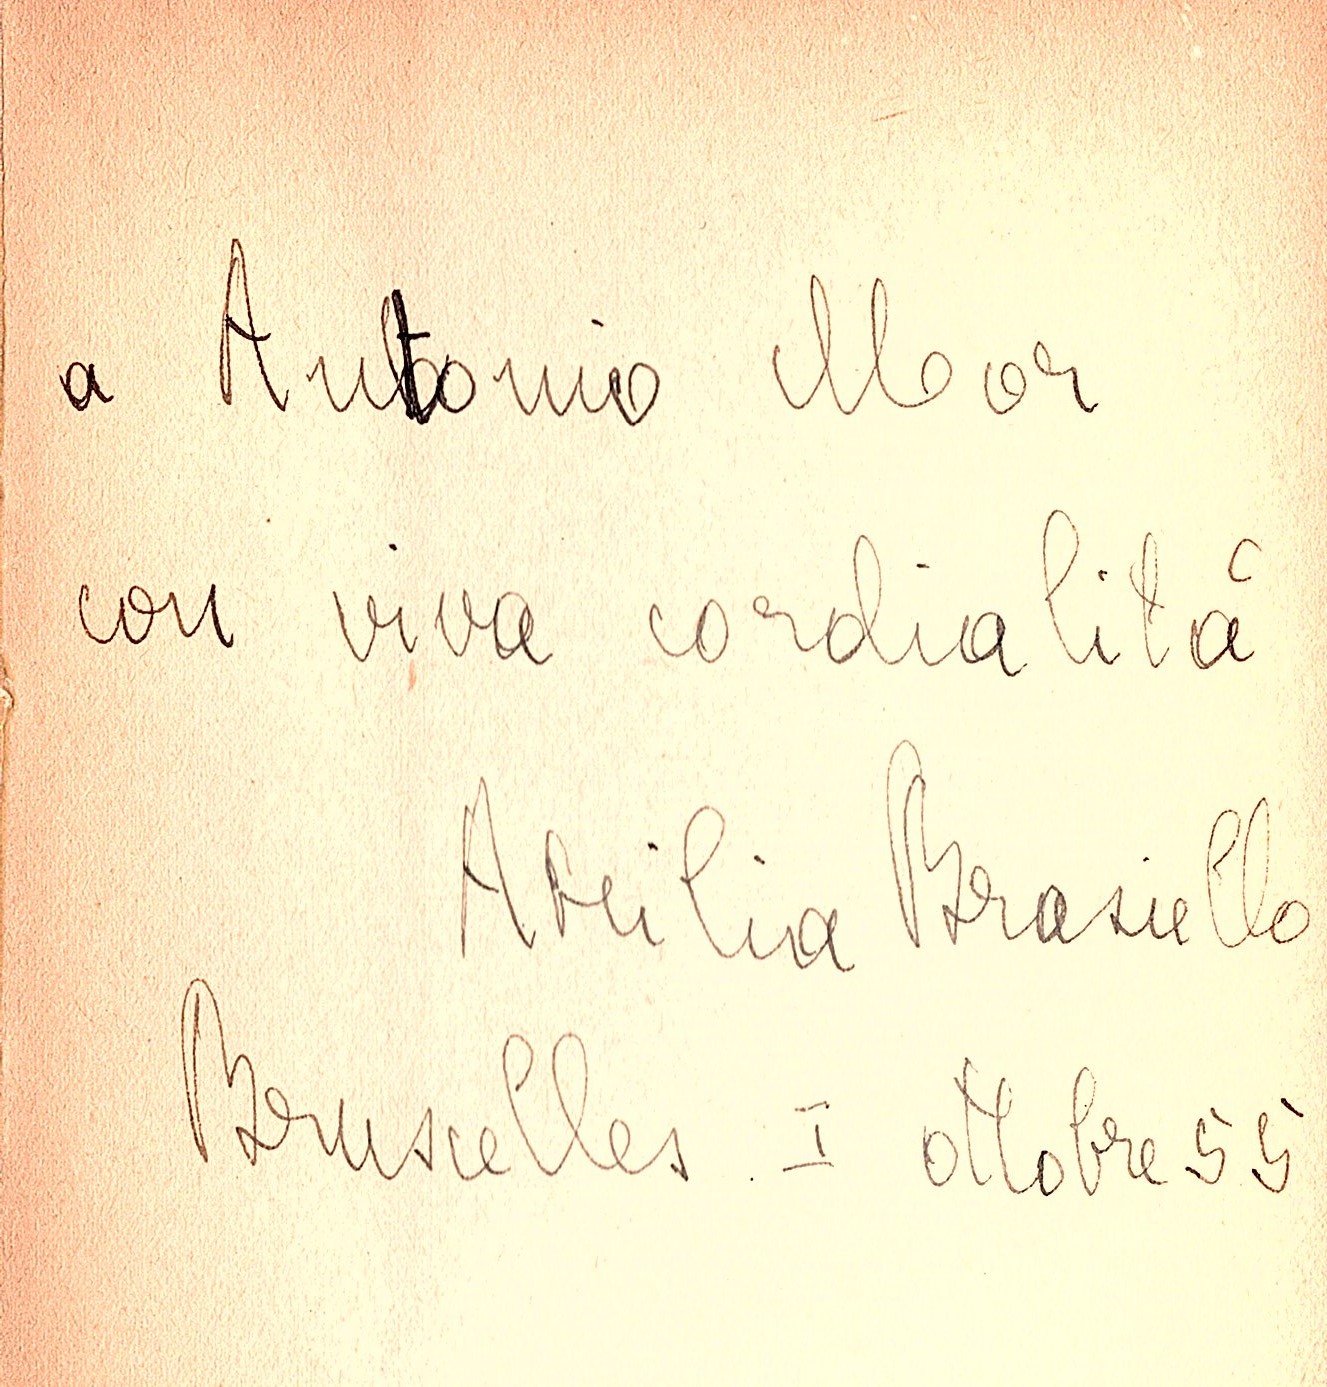 a Antonio Mor
con viva cordialità
Attilia Brasiello
Bruxelles I ottobre 55